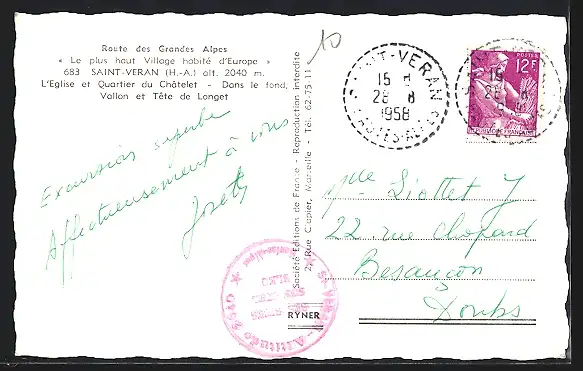 Route des Grandes Alpes
« Le plus haut Village habité d'Europe »
683 SAINT-VERAN (H.-A.) alt. 2040 m.
L'Eglise et Quartier du Châtelet - Dans le fond,
Vallon et Tête de Longet
Excursion superbe
Affectueusement à vous
Josette
Société Editions de France - Reproduction interdite
2, Rue Capier, Marseille - Tél. 62-75-11
RYNER
10
SAINT-VERAN
15 H
28 8
1958
HAUTES-ALPES
POSTES
12F
REPUBLIQUE FRANÇAISE
Mlle Liottet J
22 rue Chopard
Besançon
Doubs